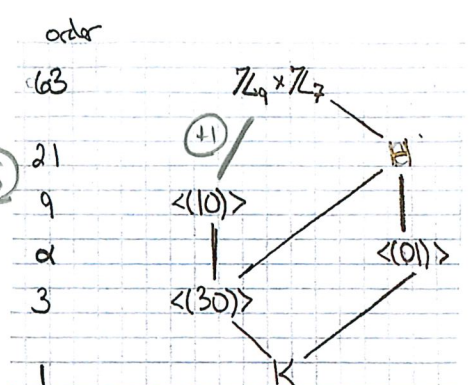 order
63 ℤ₉ × ℤ₇
+1
21 H
9 <(10)>
α <(01)>
3 <(30)>
1 K